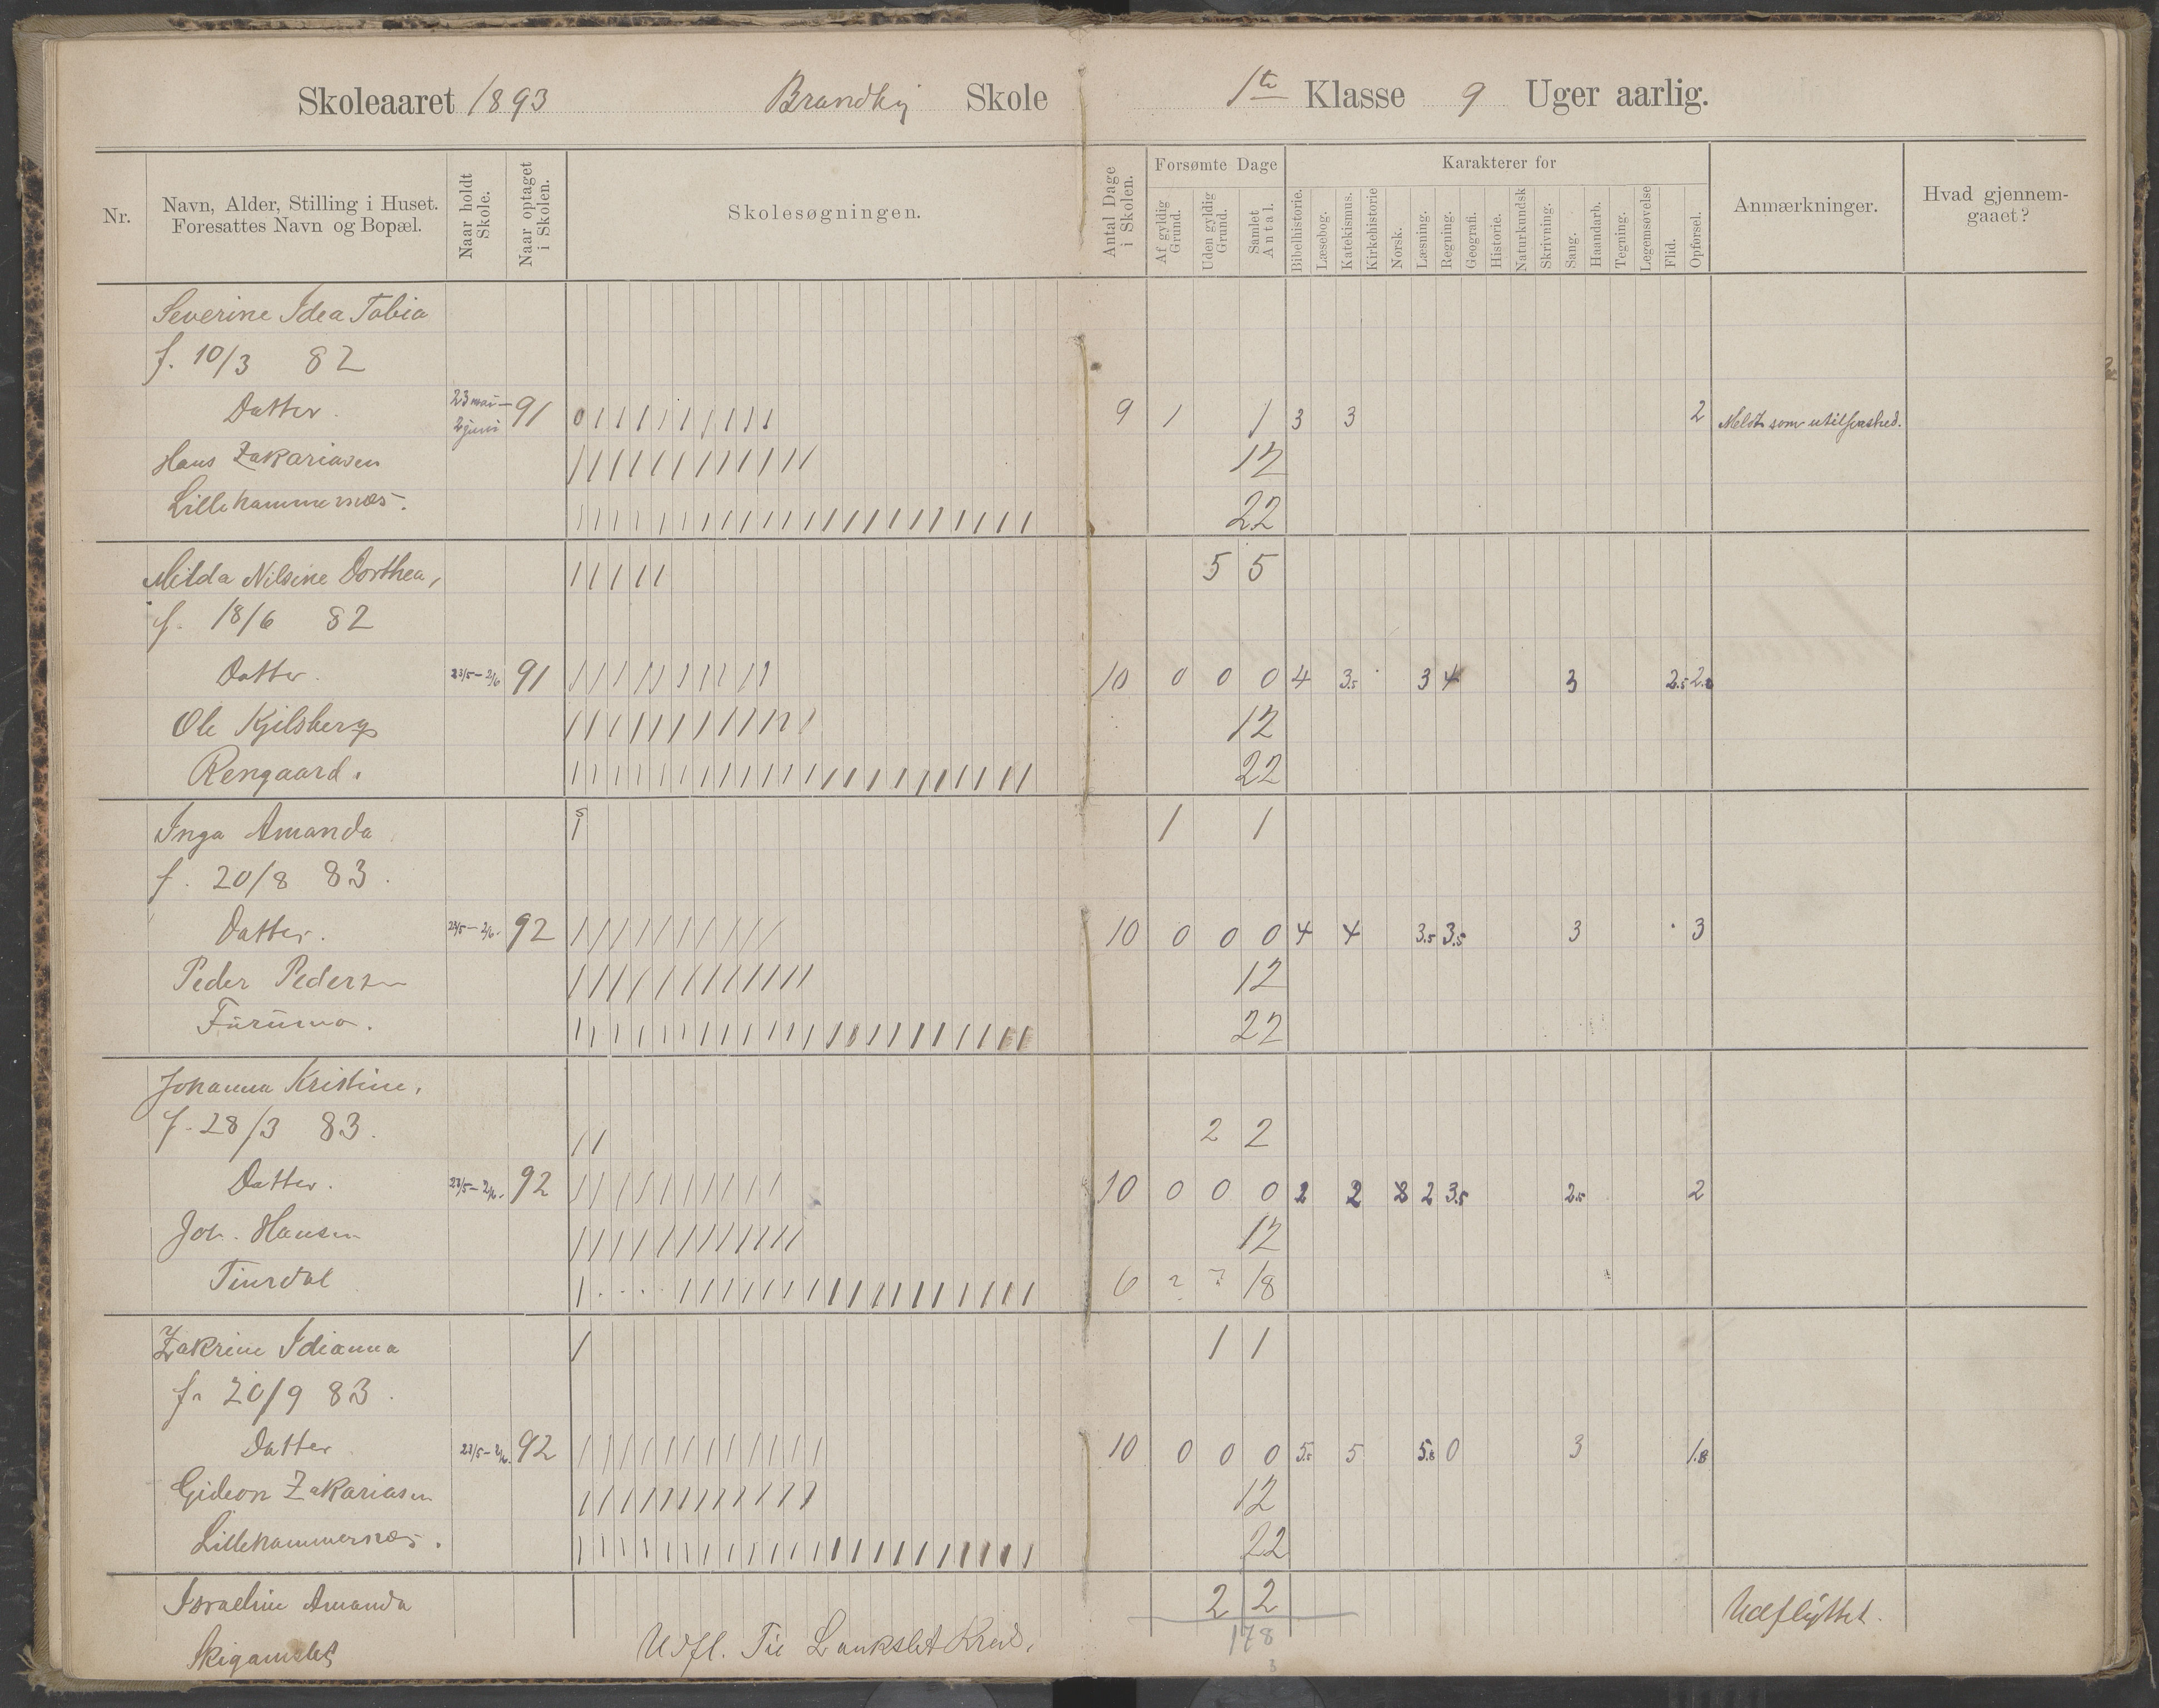 Skoleaaret 1893 Brandlij Skole 1te Klasse 9 Uger aarlig.
Nr.
Navn, Alder, Stilling i Huset. Foresattes Navn og Bopæl.
Naar holdt Skole.
Naar optaget i Skolen.
Skolesøgningen.
Antal Dage i Skolen.
Forsømte Dage
Af gyldig Grund.
Uden gyldig Grund.
Samlet Antal.
Karakterer for
Bibelhistorie.
Læsebog.
Katekismus.
Kirkehistorie
Norsk.
Læsning.
Regning.
Geografi.
Historie.
Naturkundsk
Skrivning.
Sang.
Haandarb.
Tegning.
Legemsøvelse
Flid.
Opførsel.
Anmærkninger.
Hvad gjennemgaaet?
Severine Idea Tobia
f. 10/3 82
Datter. 23 mai – 2 juni 91 9 1 1 3 3 2 Meldt som
Hans Zakariasen 12
Lillehammernæs. 22
Milda Nilsine Dorthea, 5 5
f. 18/6 82
Datter. 23/5 – 2/6 91 10 0 0 0 4 3.5 3 4 3 2.5
Ole Kjilsberg 12
Rengaard. 22
Inga Amanda s 1 1
f. 20/8 83.
Datter. 23/5 – 2/6. 92 10 0 0 0 4 4 3.5 3.5 3 3
Peder Pedersen 12
Furumo. 22
Johanna Kristine.
f. 28/3 83. 2 2
Datter. 23/5 – 2/6. 92 10 0 0 0 2 2 2 3.5 2.5 2
Joh. Hansen 12
6 ? ? 18
Zakrine Idianna 1 1
f. 20/9 83.
Datter 23/5 – 2/6. 92 10 0 0 0 5.5 5 5.8 0 3 1.8
Gideon Zakariasen 12
Lillehammernæs. 22
Israeline Amanda 2 2 Udflyttet.
Udfl. Til Krds. 178
3